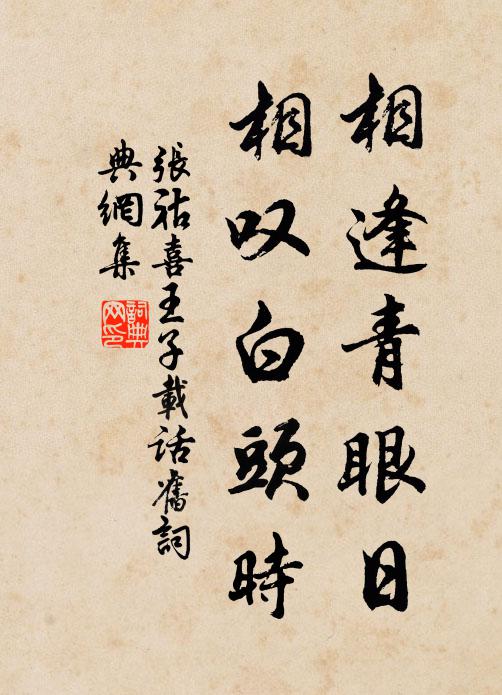 相逢青眼日
相叹白頭時
張祜喜王子載話舊詞
典網集
詞典
网印